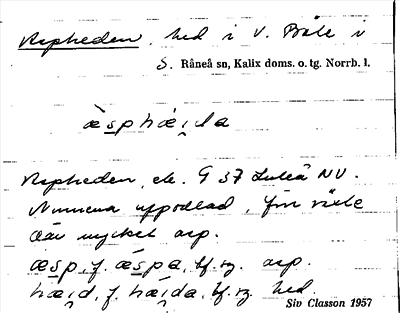 Aspheden, hed i V. Böle i
S. Råneå sn, Kalix doms. o. tg. Norrb. l.
æ̀sphæi̯da
Aspheden, ek. 9 37 Luleå NV.
Numera uppodlad, förr växte
där mycket asp.
æsp, f. ǽspa, bf. sg. asp.
hæi̯d, f. hǽi̯da, bf. sg. hed.
Siv Classon 1957